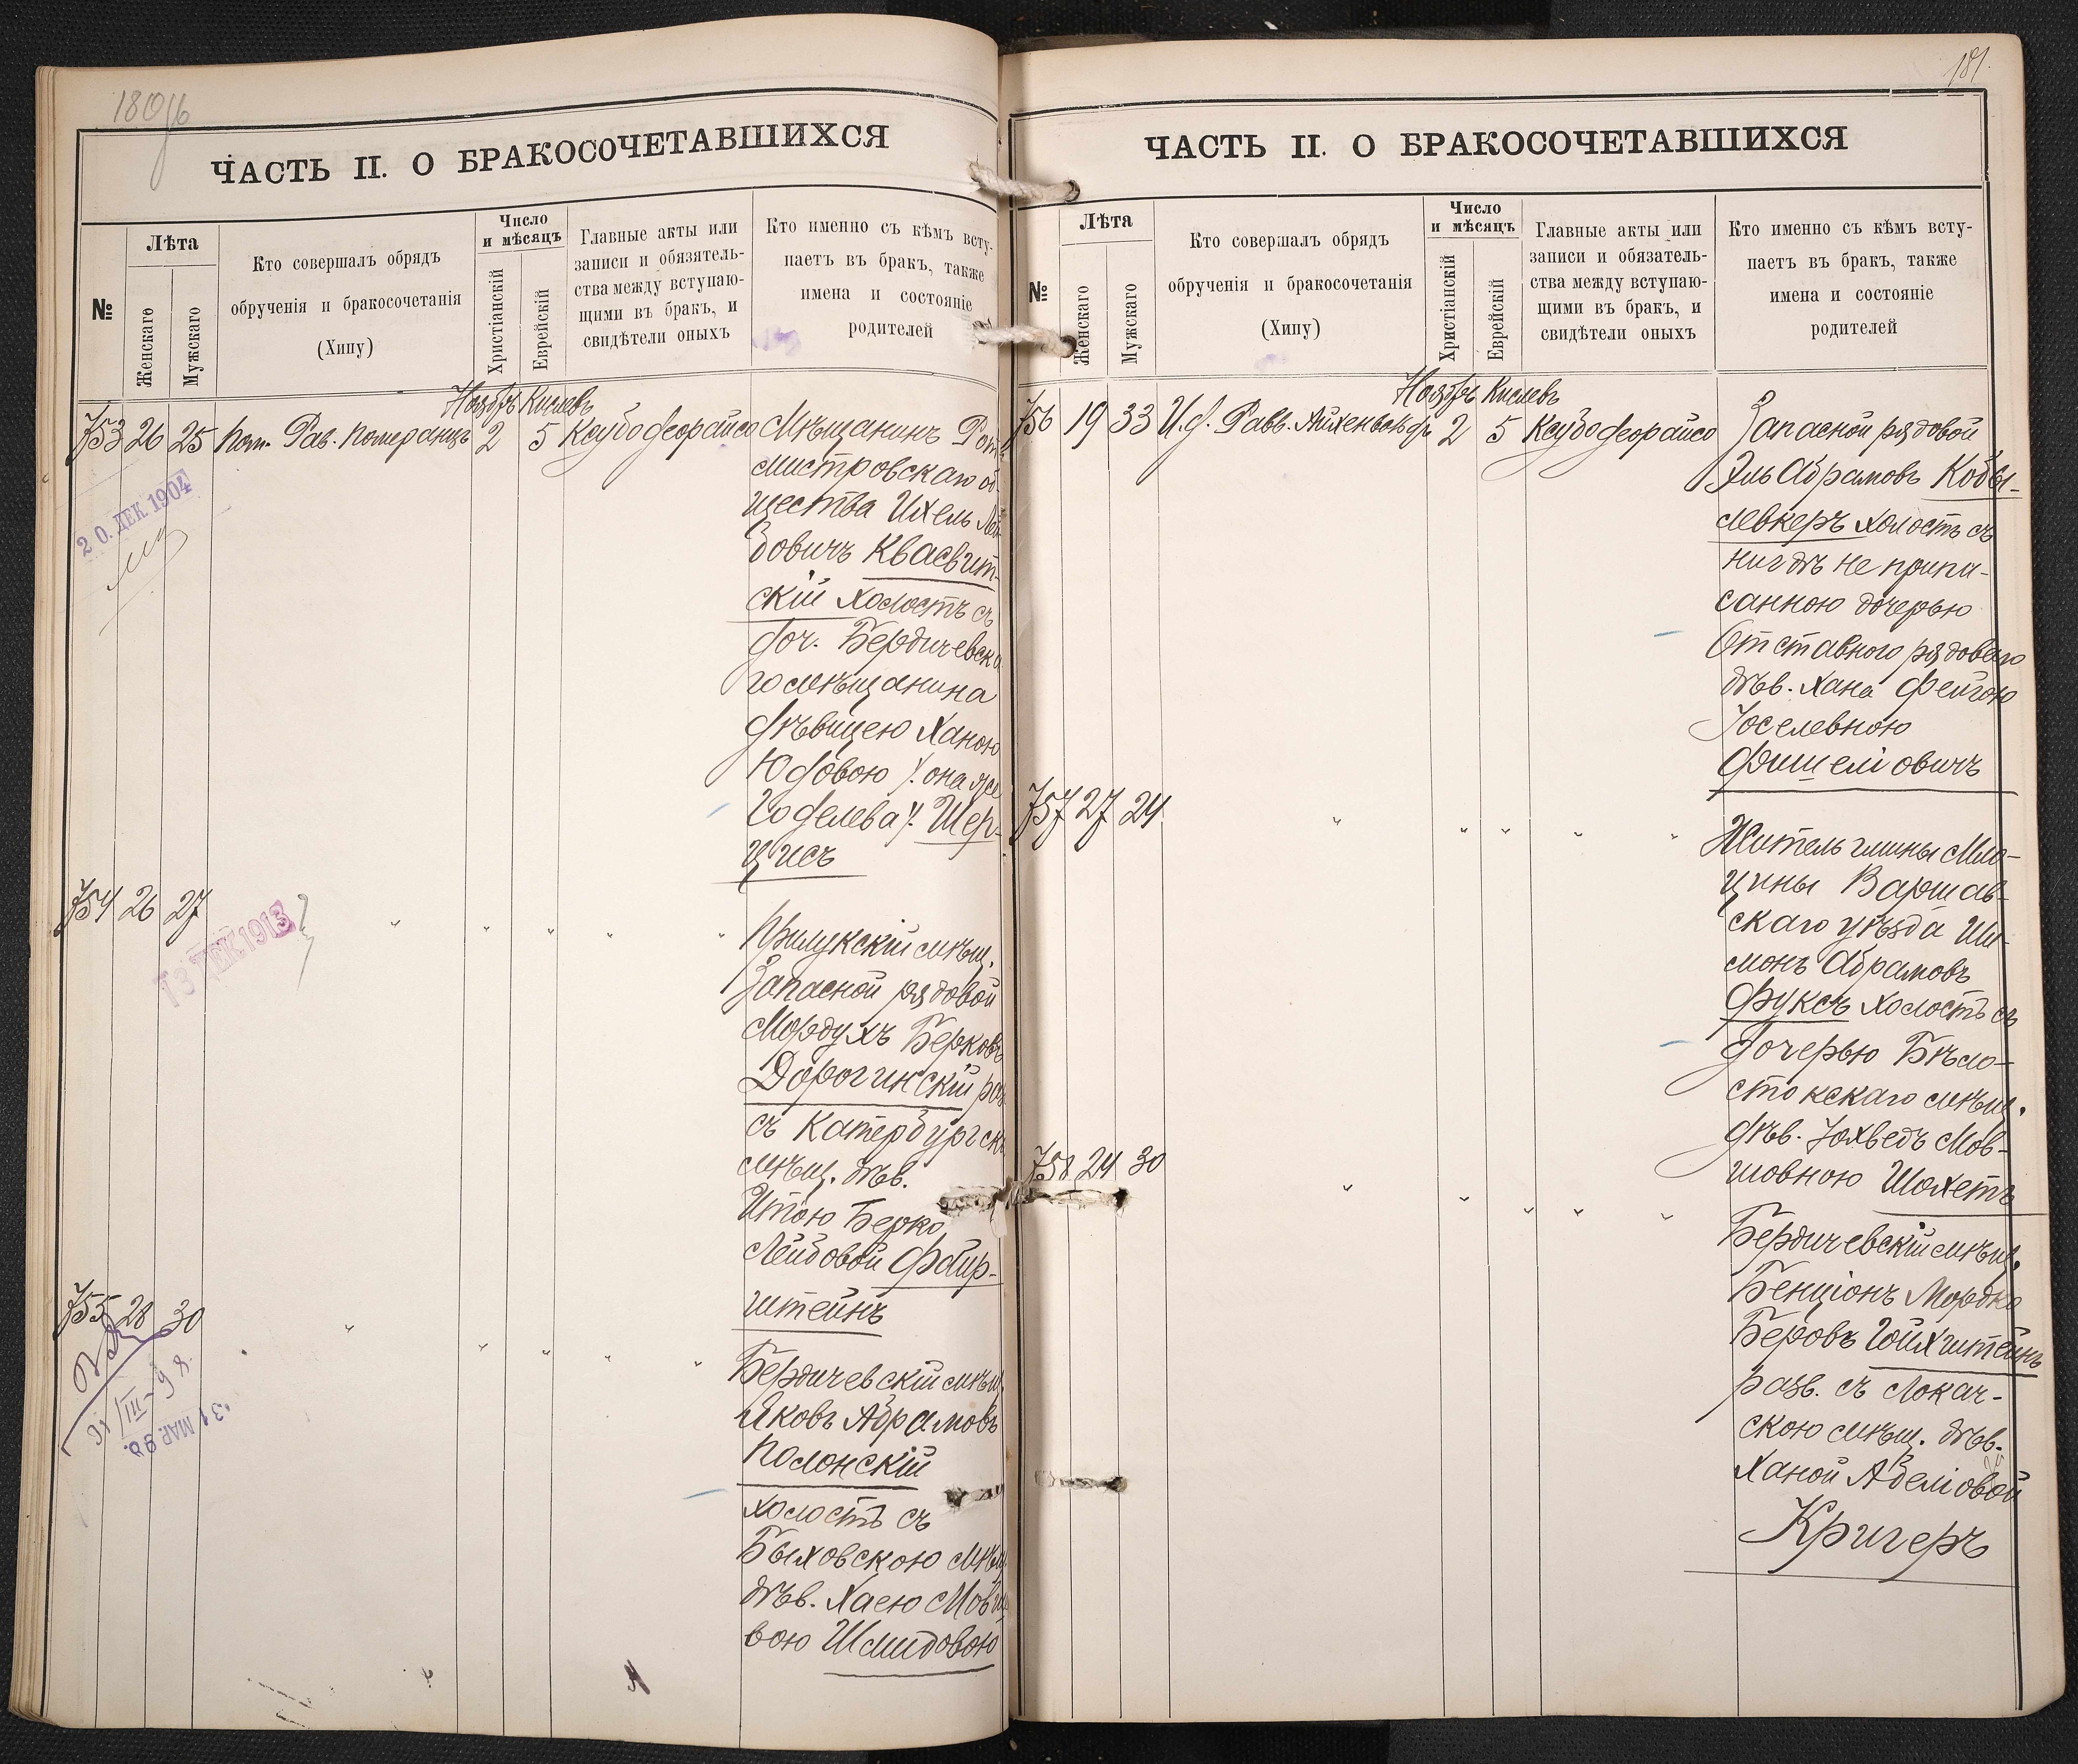 180об
ЧАСТЬ II. О БРАКОСОЧЕТАВШИХСЯ
№
Лѣта
Женскаго
Мужскаго
Кто совершалъ обрядъ
обрученія и бракосочетанія
(Хипу)
Число
и мѣсяцъ
Христіанскій
Еврейскій
Главные акты или
записи и обязатель-
ства между вступаю-
щими въ бракъ, и
свидѣтели оныхъ
Кто именно съ кѣмъ всту-
паетъ въ бракъ, также
имена и состояніе
родителей
Ноябрь Кислевъ
753 26 25 пом. Рав. Померанцъ 2 5 Ксубо деорайсо Мѣщанинъ Рот
мистровскаго об-
щества Ихель Лей
бовичъ Квасвит-
скій холостъ съ
доч. Бердичевска
го мѣщанина
дѣвицею Ханою
Юдовою /: она же
Годелева /: Шер-
цисъ
20. ДЕК. 1904
754 26 27 " " " " " Прилукскій мѣщ.
Запасной рядовой
Мордухъ Берковъ
Дорогинскій раз
съ Катербургск
мѣщ. дѣв.
Итою Берко
Лейбовой Фаир-
штейнъ
13 ДЕК. 1913
755 28 30 " " " " " Бердичевскій мѣщ.
Яковъ Абрамовъ
Полонскій
холостъ съ
Быховскою мѣщ
дѣв. Хаею Мовш
вою Шмидовою
31 МАР. 98.
181.
ЧАСТЬ II. О БРАКОСОЧЕТАВШИХСЯ
№
Лѣта
Женскаго
Мужскаго
Кто совершалъ обрядъ
обрученія и бракосочетанія
(Хипу)
Число
и мѣсяцъ
Христіанскій
Еврейскій
Главные акты или
записи и обязатель-
ства между вступаю-
щими въ бракъ, и
свидѣтели оныхъ
Кто именно съ кѣмъ всту-
паетъ въ бракъ, также
имена и состояніе
родителей
Ноябрь Кислевъ
756 19 33 И.д. Равв. Айхенвальдъ 2 5 Ксубо деорайсо Запасной рядовой
Эль Абрамовъ Кобы-
левкеръ холостъ съ
нигдѣ не припи-
санною дочерью
Отставного рядового
дѣв. Хана Фейгою
Іоселевною
Фишеліовичъ
757 27 24 " " " " " Житель гмины Мло-
цины Варшав-
скаго уѣзда Ши-
монъ Абрамовъ
Фуксъ холостъ съ
дочерью Бѣло-
стокскаго мѣщ.
дѣв. Іохведъ Мов-
шовною Шохетъ
758 24 30 " " " " " Бердичевскій мѣщ.
Бенціонъ Мордко
Беровъ Гойхштейнъ
разв. съ Локач-
скою мѣщ. дѣв.
Ханой Абеліовой
Кригеръ